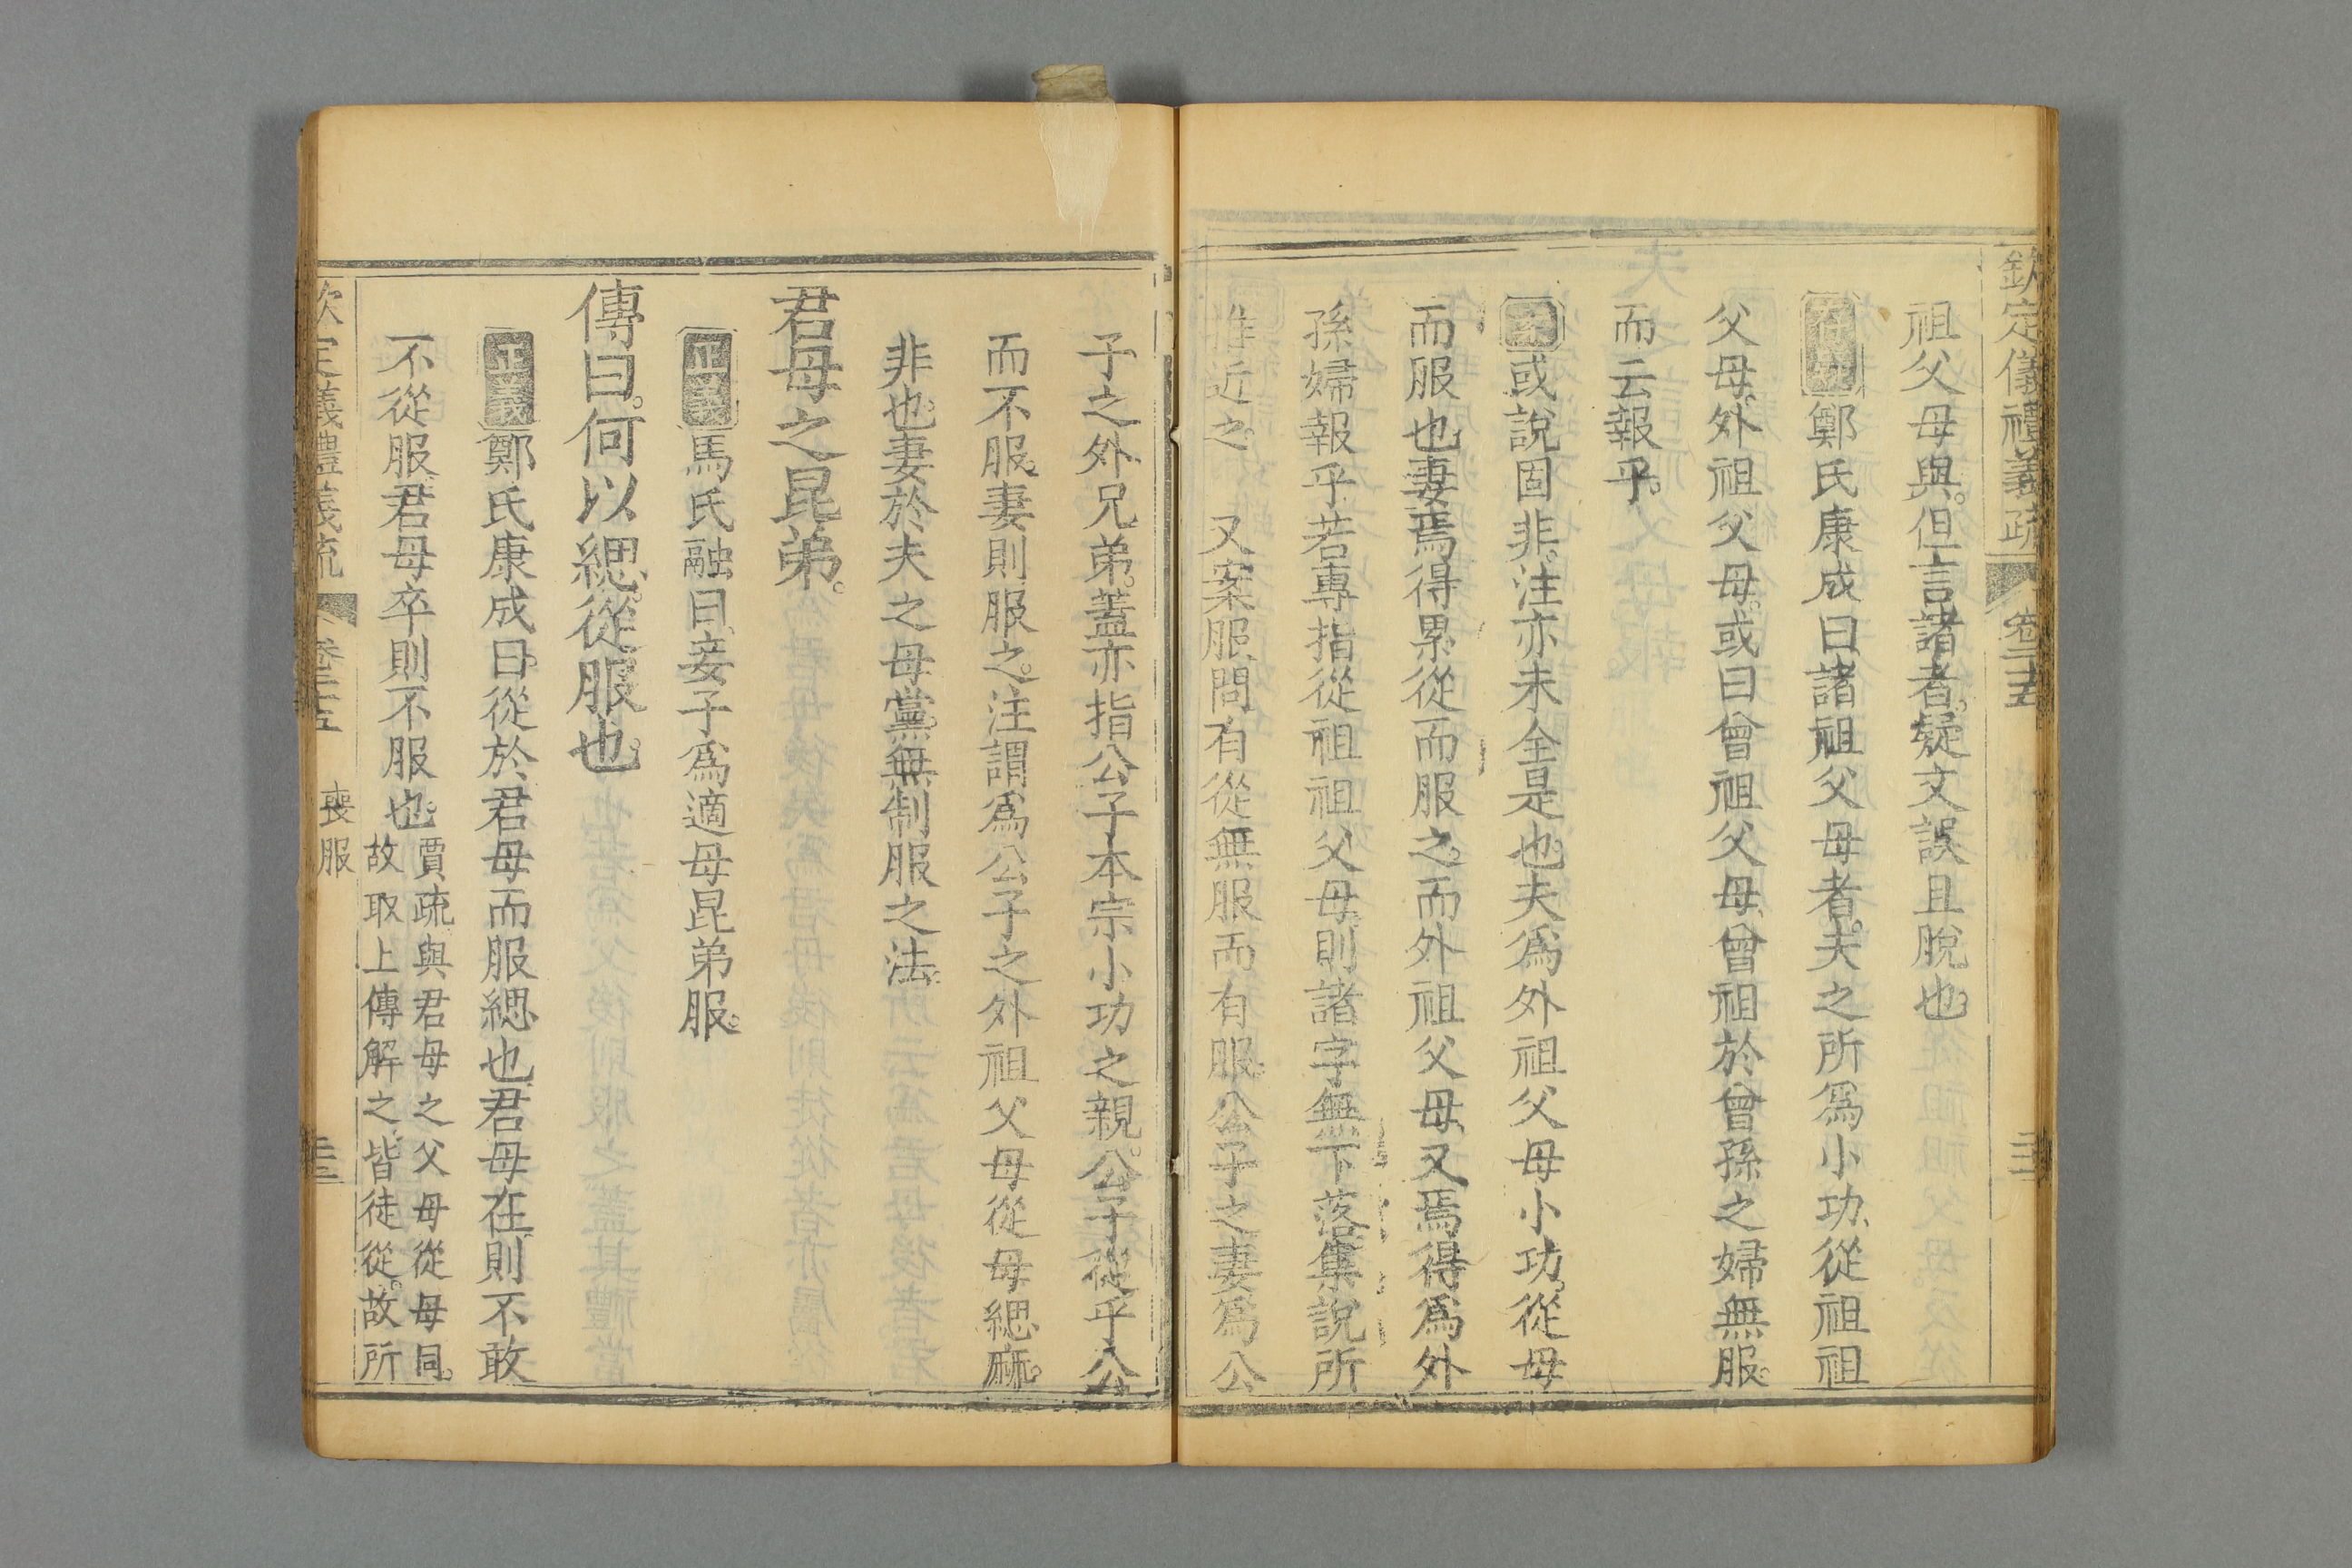 欽定儀禮義疏 卷二十五
祖父母與。但言諸者。疑文誤且脫也。
存疑鄭氏康成曰諸祖父母者。夫之所爲小功、從祖祖
父母、外祖父母。或曰曾祖父母、曾祖於曾孫之婦無服。
而云報乎。
案或說固非。注亦未全是也。夫爲外祖父母小功。從母
而服也。妻焉得累從而服之。而外祖父母、又焉得爲外
孫婦報乎若專指從祖祖父母。則諸字無下落集說所
推近之。 又案服問有從無服而有服。公子之妻爲公
子之外兄弟。蓋亦指公子本宗小功之親。公子從乎公
而不服。妻則服之。注謂爲公子之外祖父母從母緦麻。
非也。妻於夫之母黨。無制服之法。
君母之昆弟。
正義馬氏融曰、妾子爲適母昆弟服。
傳曰。何以緦。從服也。
正義鄭氏康成曰。從於君母而服緦也。君母在則不敢
不從服。君母卒則不服也。
賈疏與君母之父母從母同。
故取上傳解之。皆徒從。故所
欽定儀禮義疏 卷二十五 喪服